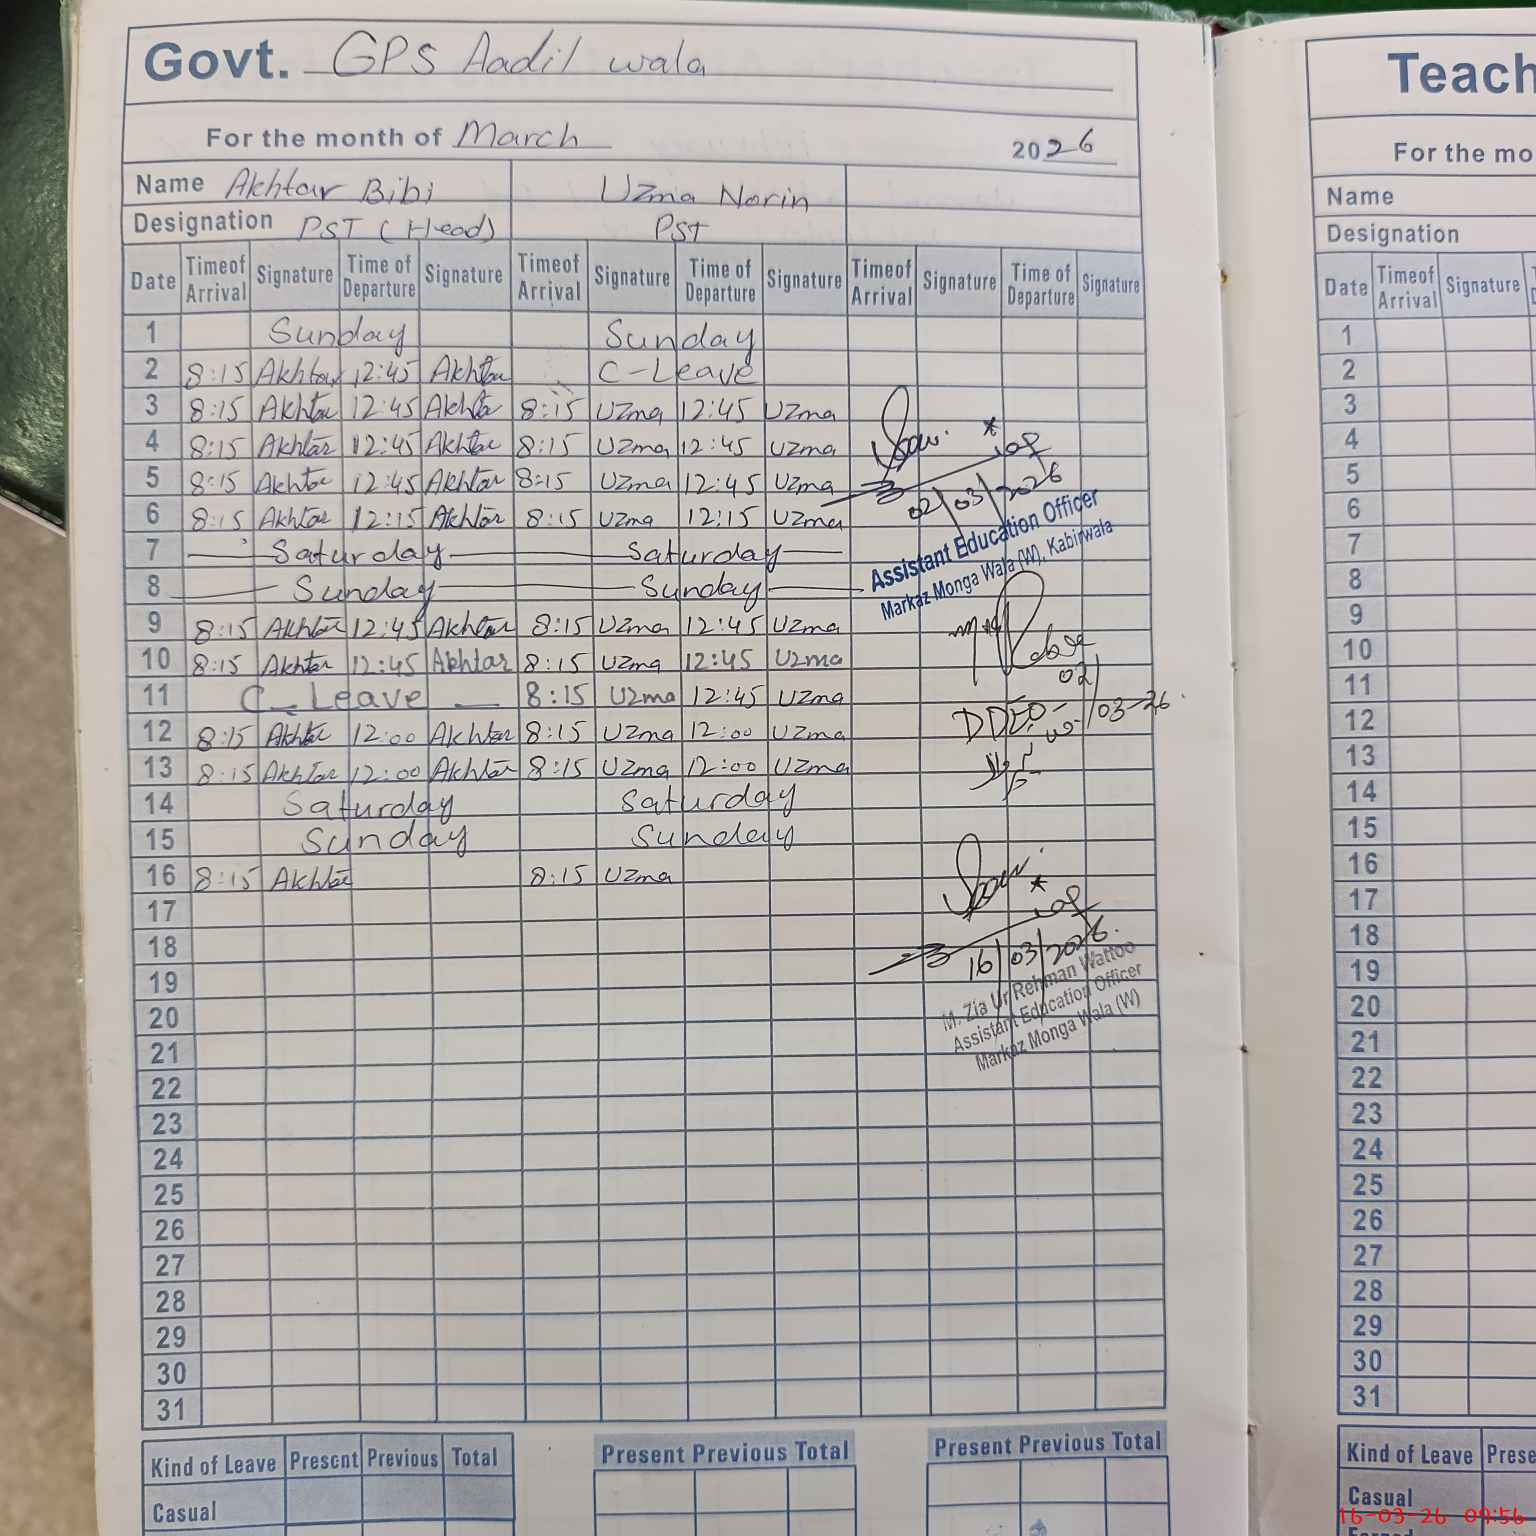 Govt. GPS Aadil wala
For the month of March 2026
Name Akhtar Bibi Uzma Norin
Designation PST (Head) PST
Date Timeof Arrival Signature Time of Departure Signature Timeof Arrival Signature Time of Departure Signature Timeof Arrival Signature Time of Departure Signature
1 Sunday Sunday
2 8:15 Akhtar 12:45 Akhtar C-Leave
3 8:15 Akhtar 12:45 Akhtar 8:15 Uzma 12:45 Uzma
4 8:15 Akhtar 12:45 Akhtar 8:15 Uzma 12:45 Uzma
5 8:15 Akhtar 12:45 Akhtar 8:15 Uzma 12:45 Uzma
6 8:15 Akhtar 12:15 Akhtar 8:15 Uzma 12:15 Uzma
7 Saturday Saturday
8 Sunday Sunday
9 8:15 Akhtar 12:45 Akhtar 8:15 Uzma 12:45 Uzma
10 8:15 Akhtar 12:45 Akhtar 8:15 Uzma 12:45 Uzma
11 C-Leave 8:15 Uzma 12:45 Uzma
12 8:15 Akhtar 12:00 Akhtar 8:15 Uzma 12:00 Uzma
13 8:15 Akhtar 12:00 Akhtar 8:15 Uzma 12:00 Uzma
14 Saturday Saturday
15 Sunday Sunday
16 8:15 Akhtar 8:15 Uzma
17
18
19
20
21
22
23
24
25
26
27
28
29
30
31
02/03/2026
Assistant Education Officer
Markaz Monga Wala (W), Kabirwala
02/03-26
16/03/2026
M. Zia Ur Rehman Wattoo
Assistant Education Officer
Markaz Monga Wala (W)
Kind of Leave Present Previous Total Present Previous Total Present Previous Total
Casual
Teach
For the mo
Name
Designation
Date Timeof Arrival Signature
1
2
3
4
5
6
7
8
9
10
11
12
13
14
15
16
17
18
19
20
21
22
23
24
25
26
27
28
29
30
31
Kind of Leave Prese
Casual
16-03-26 09:56